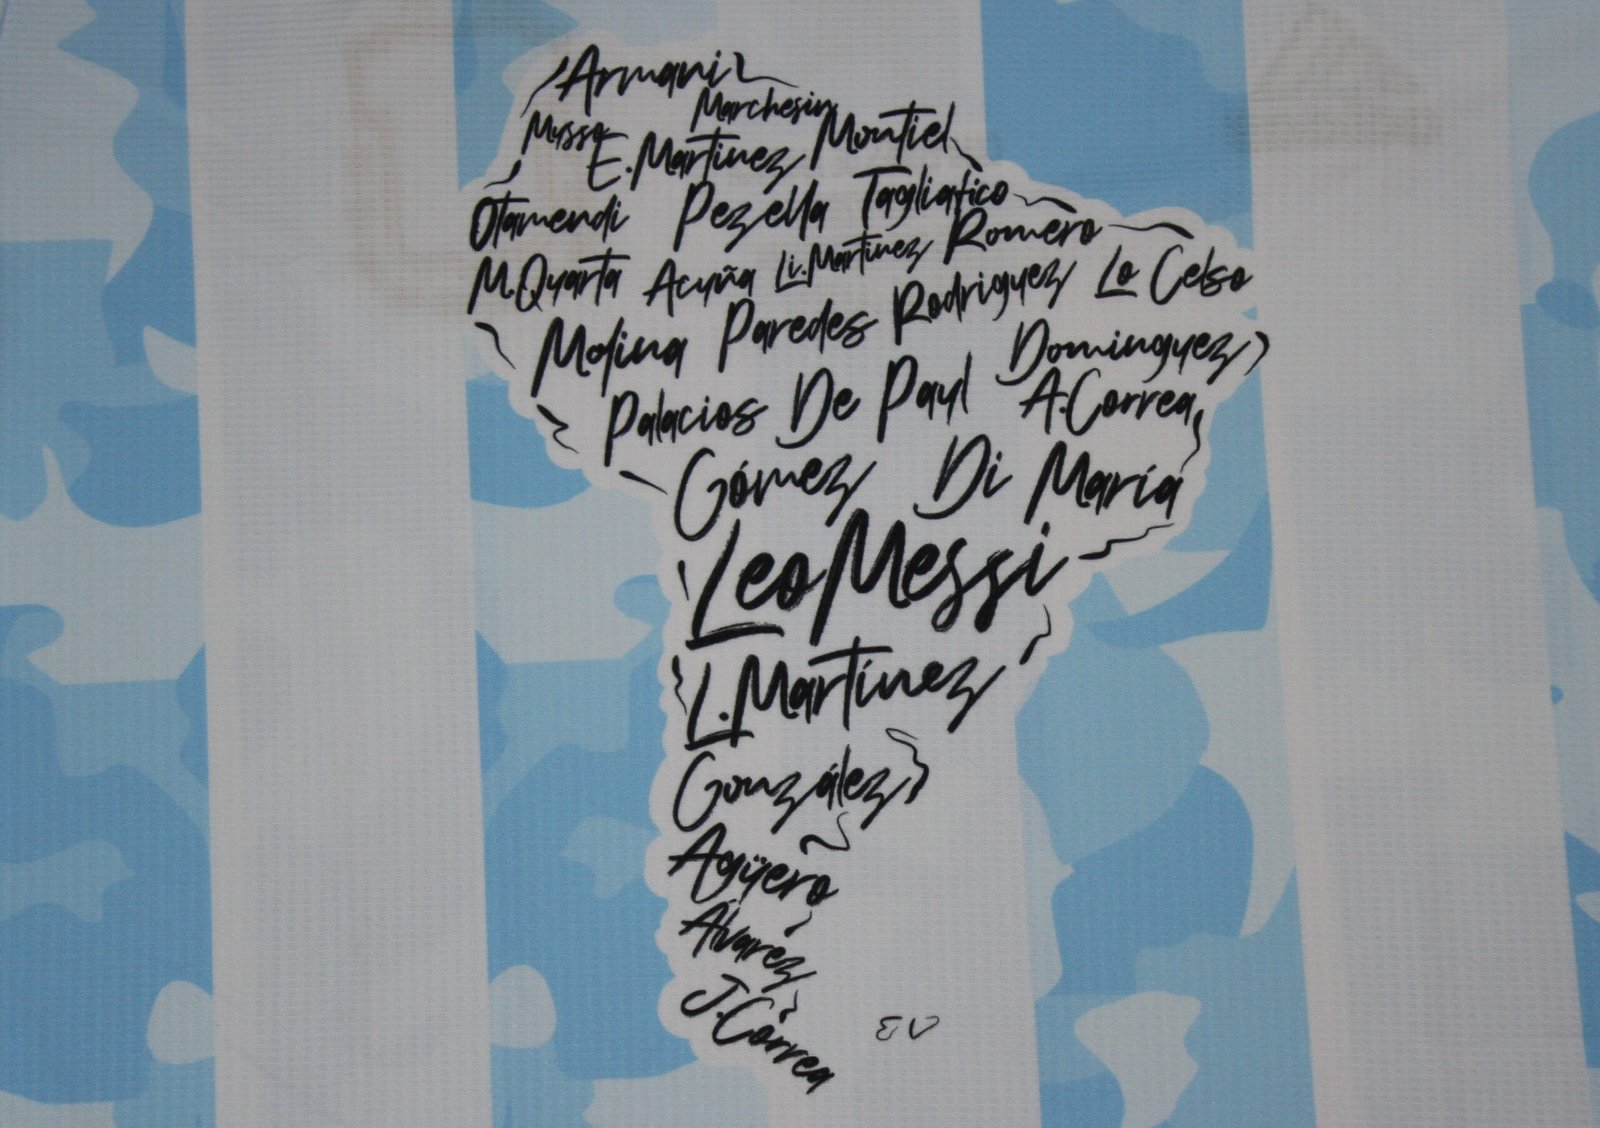 Armani
Marchesin
Musso E.Martinez Montiel
Otamendi Pezella Tagliafico
M.Quarta Acuña Li.Martinez Romero
Molina Paredes Rodriguez Lo Celso
Palacios De Paul Dominguez
A.Correa
Gómez Di María
Leo Messi
L.Martínez
González
Agüero
Álvarez
J.Correa
EV